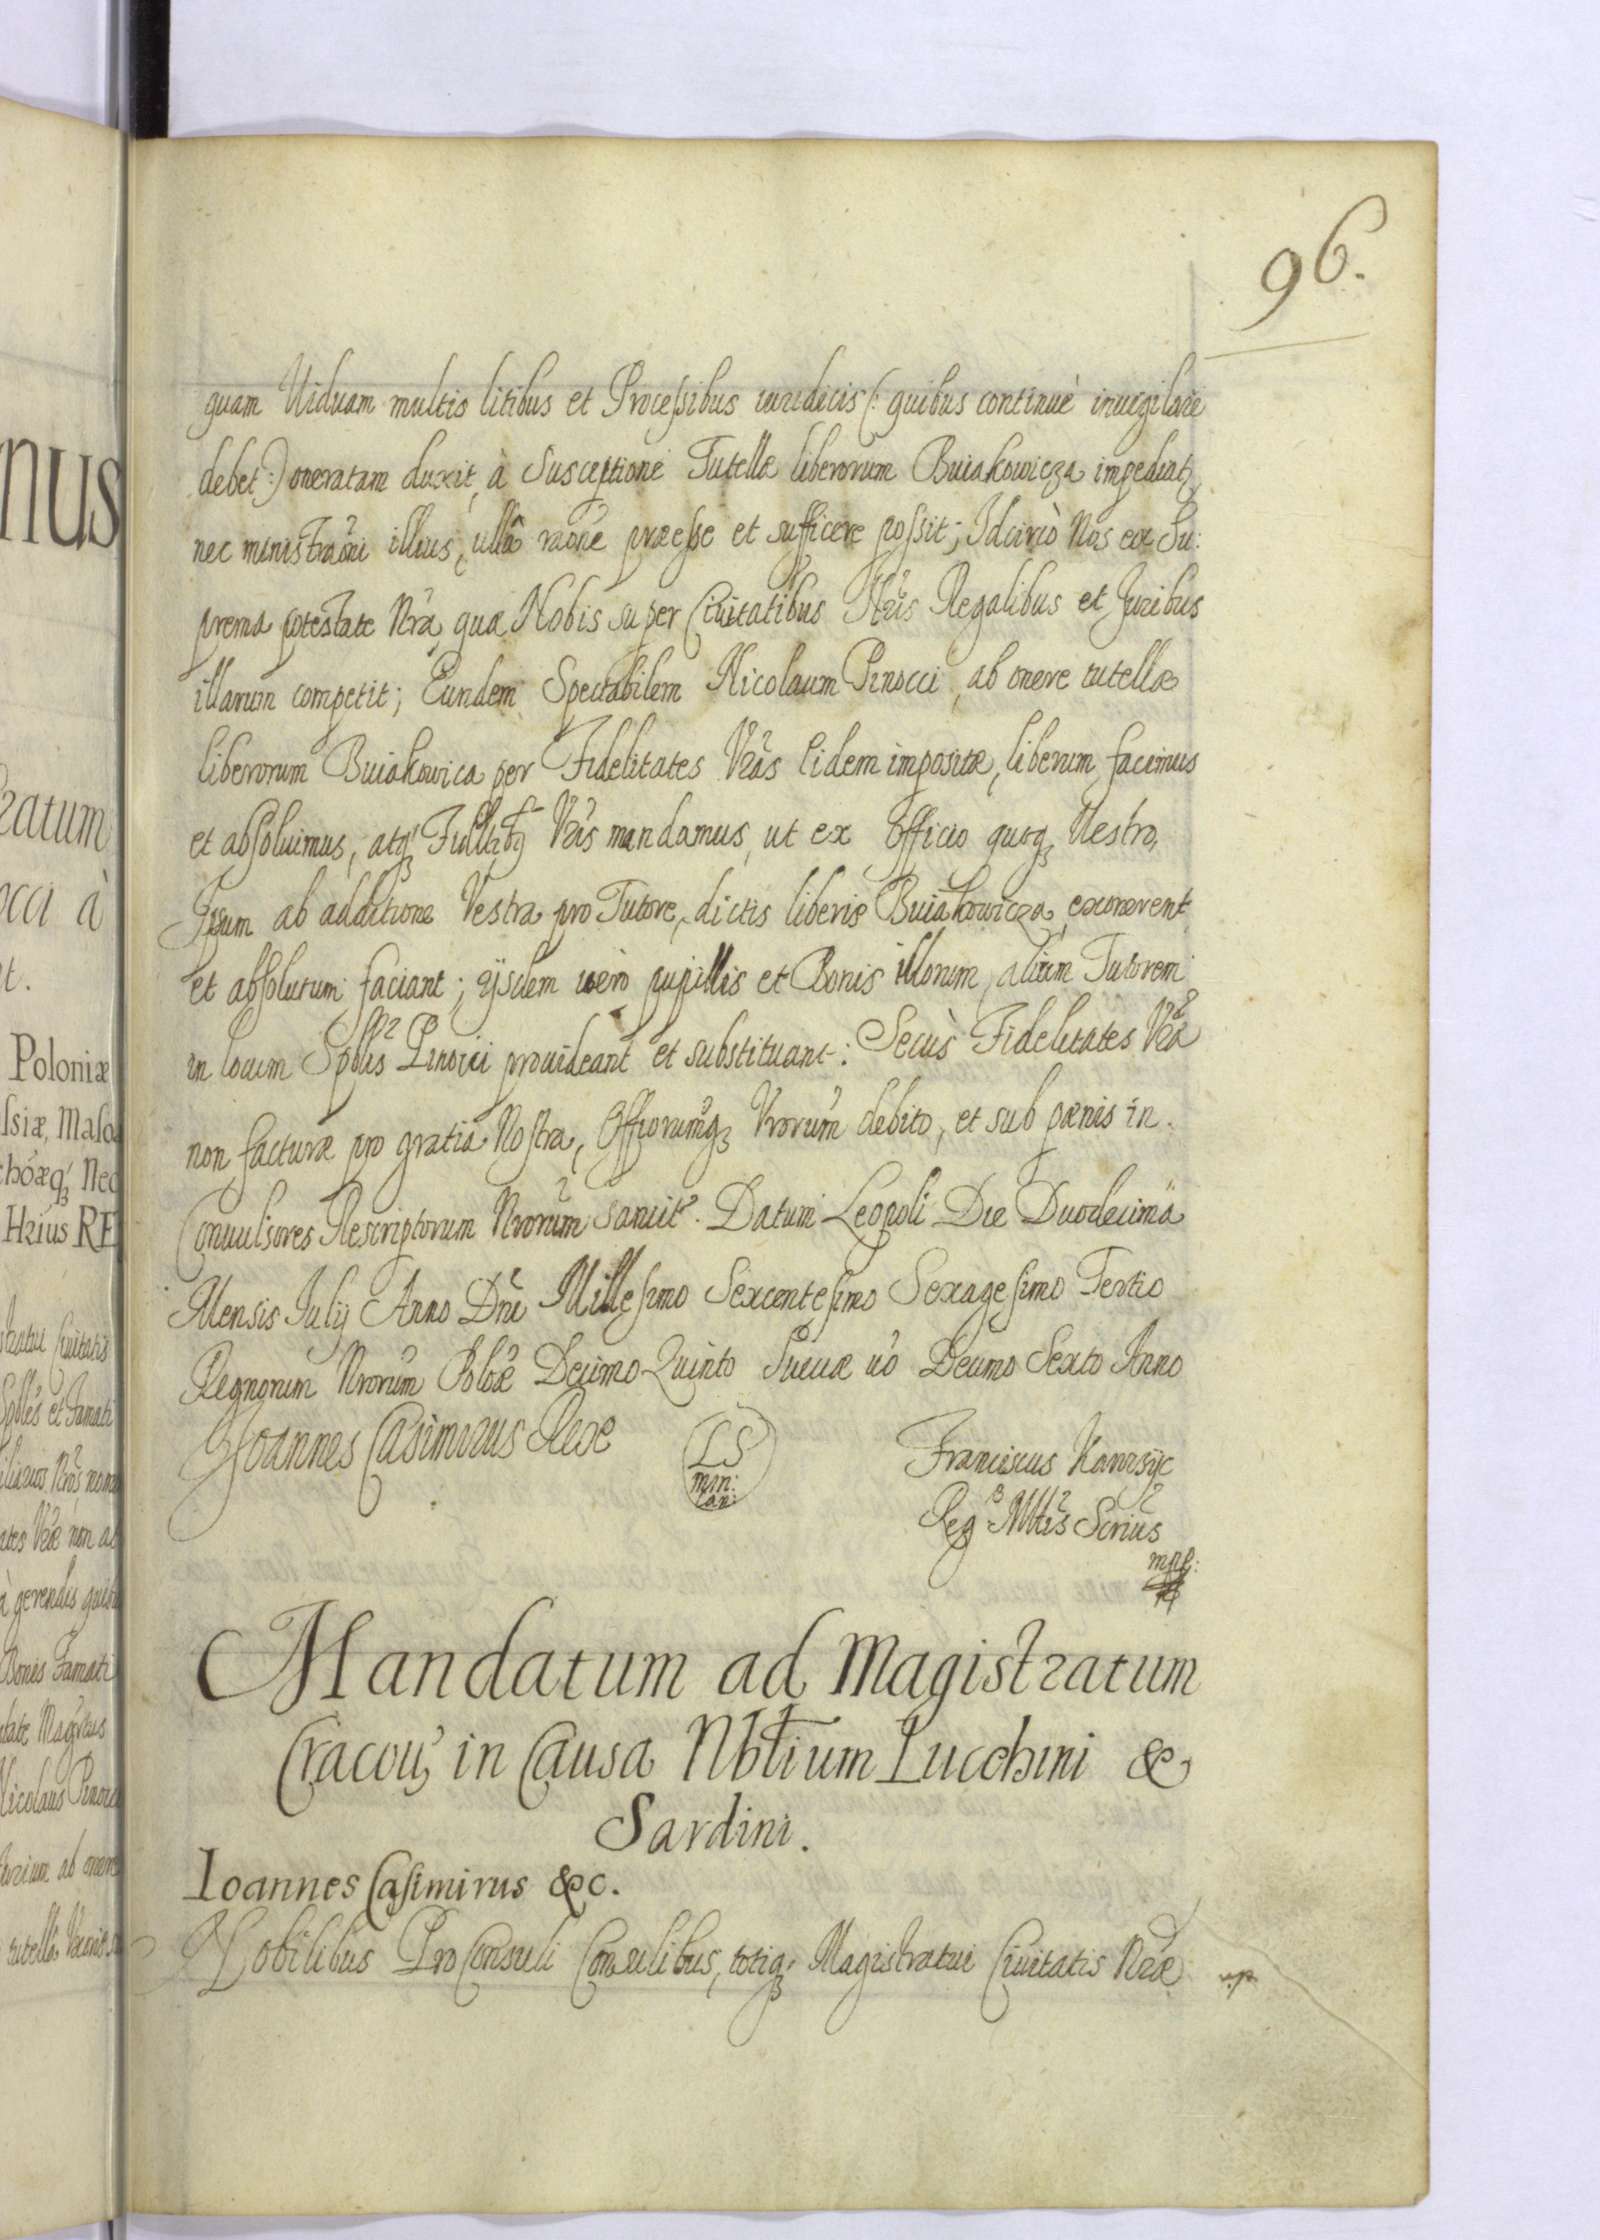 96.
quam Viduam multis litibus et Processibus iuridicis (: quibus continuè inuigilare
debet :) oneratam duxit, à Susceptione Tutellæ liberorum Buiakowicza impediat,
nec ministraõni illius, ullâ raõne præesse et sufficere possit; Idcircò Nos ex Su:
prema potestate Nrã, qua Nobis super Ciuitatibus Nrĩs Regalibus et Juribus
illarum competit; Eundem Spectabilem Nicolaum Pinocci, ab onere tutellæ
liberorum Buiakowica per Fidelitates Vrãs Eidem impositæ, liberum facimus
et absoluimus, atq3 Vrĩs mandamus, ut ex Officio quoq3 Vestro,
Ipsum ab additione Vestra pro Tutore, dictis liberis Buiakowicza, exonerent
et absolutum faciant; ijsdem verò pupillis et Bonis illorum, alium Tutorem
in locum Spblis Pinocci prouideant et substituant: Secùs Fidelitates Vrã
non facturæ pro gratia Nostra, Offiorumq3 Vrorum debito, et sub pœnis in
Conuulsores Rescriptorum Nrorum sancit. Datum Leopoli Die Duodecimâ
Mensis Julij Anno Dñi Millesimo Sexcentesimo Sexagesimo Tertio
Regnorum Nrorum Poloæ Decimo Quinto Sueciæ uõ Decimo Sexto Anno
Joannes Casimirus Rex
LS
min:
can:
Franciscus
Reg. Mttis Scrius
mpp:
Mandatum ad Magistratum
Cracou, in Causa Nbtlium Lucchini &
Sardini.
Ioannes Casimirus &c.
Nobilibus ProConsuli Consulibus, totiq3 Magistratui Ciuitatis Nræ